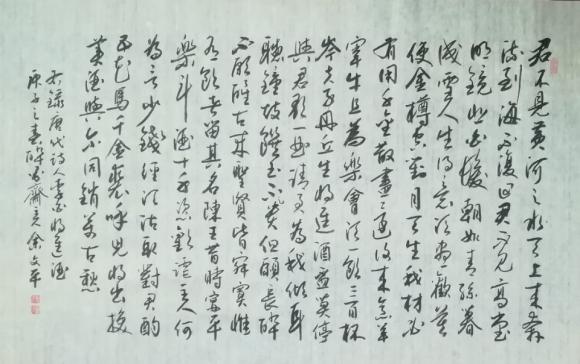 君不見黃河之水天上來奔
流到海不復回君不見高堂
明鏡悲白髮朝如青絲暮
成雪人生得意須盡歡莫
使金樽空對月天生我材必
有用千金散盡還復來烹羊
宰牛且為樂會須一飲三百杯
岑夫子丹丘生將進酒盃莫停
與君歌一曲請君為我傾耳
聽鐘鼓饌玉不足貴但願長醉
不願醒古來聖賢皆寂寞惟
有飲者留其名陳王昔時宴平
樂斗酒十千恣歡謔主人何
為言少錢徑須沽取對君酌
五花馬千金裘呼兒將出換
美酒與爾同銷萬古愁
右錄唐代詩人李白將進酒
庚子之春 齋主余文平